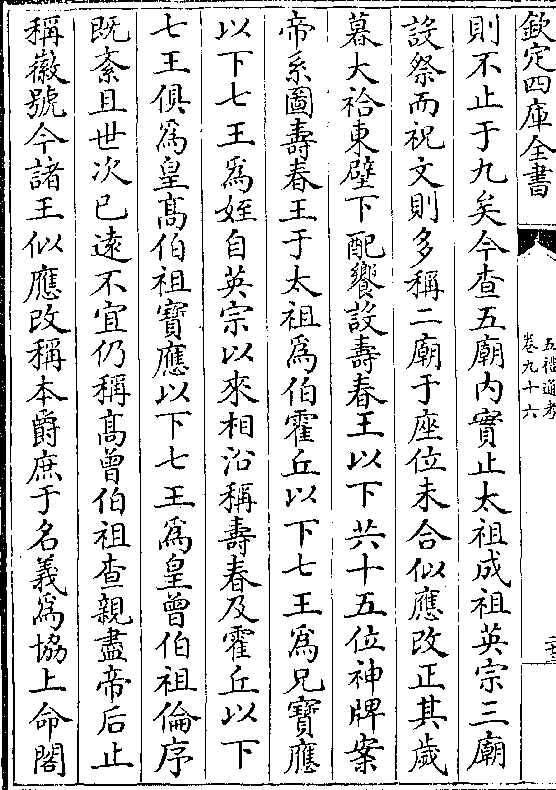 欽定四庫全書
五禮通考
卷九十六
則不止于九矣今查五廟内實止太祖成祖英宗三廟
設祭而祝文則多稱二廟于座位未合似應改正其歲
暮大祫東壁下配饗設壽春王以下共十五位神牌案
帝系圖壽春王于太祖為伯霍丘以下七王為兄寶應
以下七王為姪自英宗以來相沿稱壽春及霍丘以下
七王俱為皇髙伯祖寶應以下七王為皇曾伯祖倫序
既紊且世次已遠不宜仍稱髙曾伯祖查親盡帝后止
稱徽號今諸王似應改稱本爵庶于名義為協上命閣